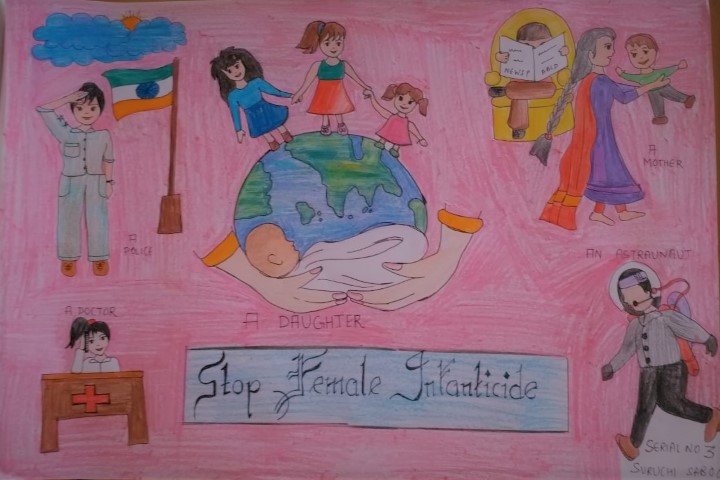 NEWSP APER
A
POLICE
A
MOTHER
AN ASTRAUNAUT
A DOCTOR
A DAUGHTER
Stop Female Infanticide
SERIAL NO 3
SURUCHI